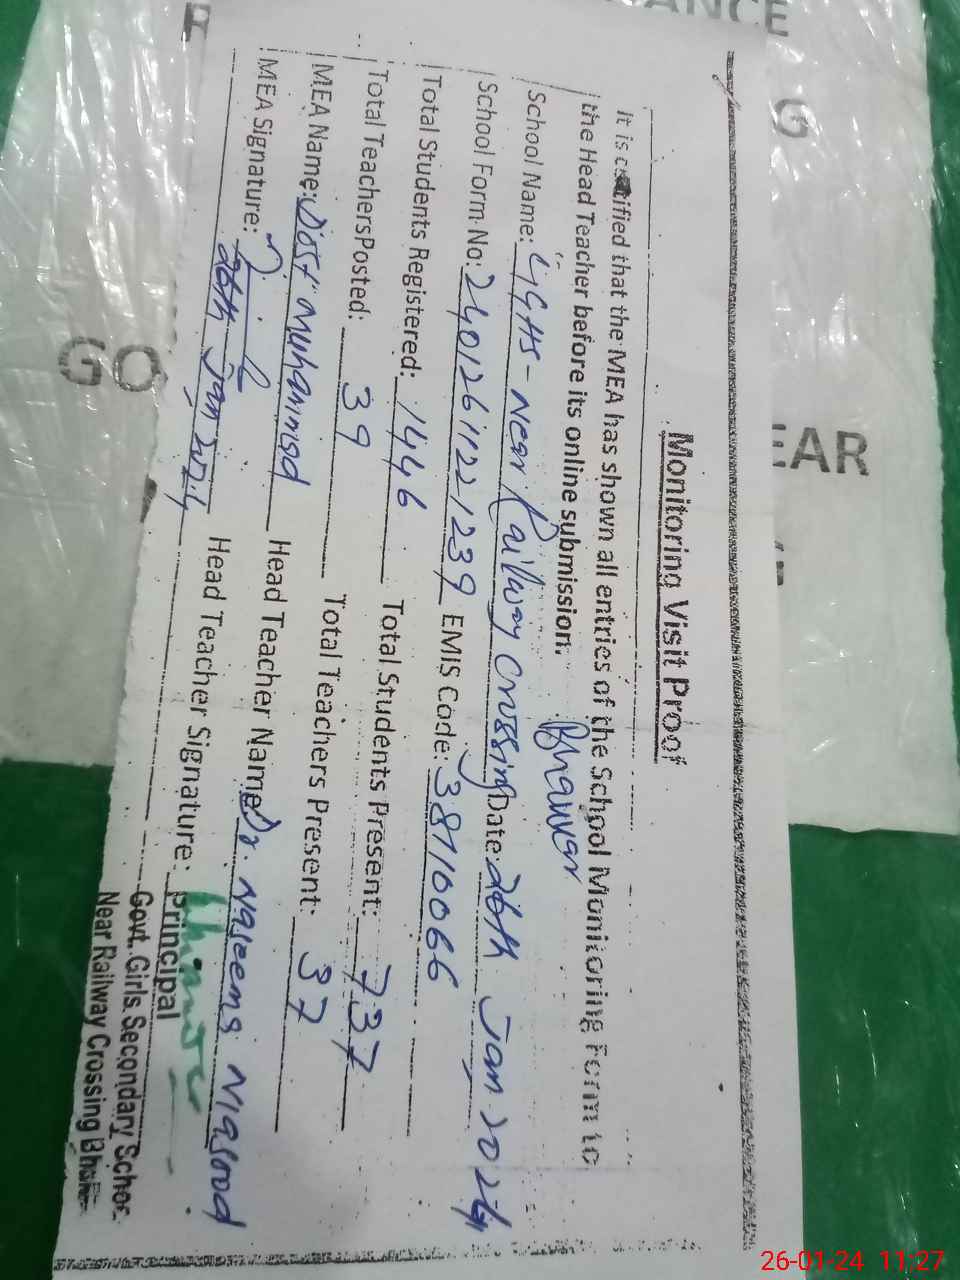 Monitoring Visit Proof
It is certified that the MEA has shown all entries of the School Monitoring Form to
the Head Teacher before its online submission.
School Name: GGHS - Near Railway Crossing Date: 26th Jan 2024
School Form No: 24012611221239 EMIS Code: 38710066
Total Students Registered: 1446 Total Students Present: 737
Total Teachers Posted: 39 Total Teachers Present: 37
MEA Name: Dost Muhammad Head Teacher Name: Dr. Naseema Masood
MEA Signature: Head Teacher Signature:
26th Jan 2024
Principal
Govt. Girls Secondary Schoo
Near Railway Crossing
GO
EAR
G
26-01-24 11:27